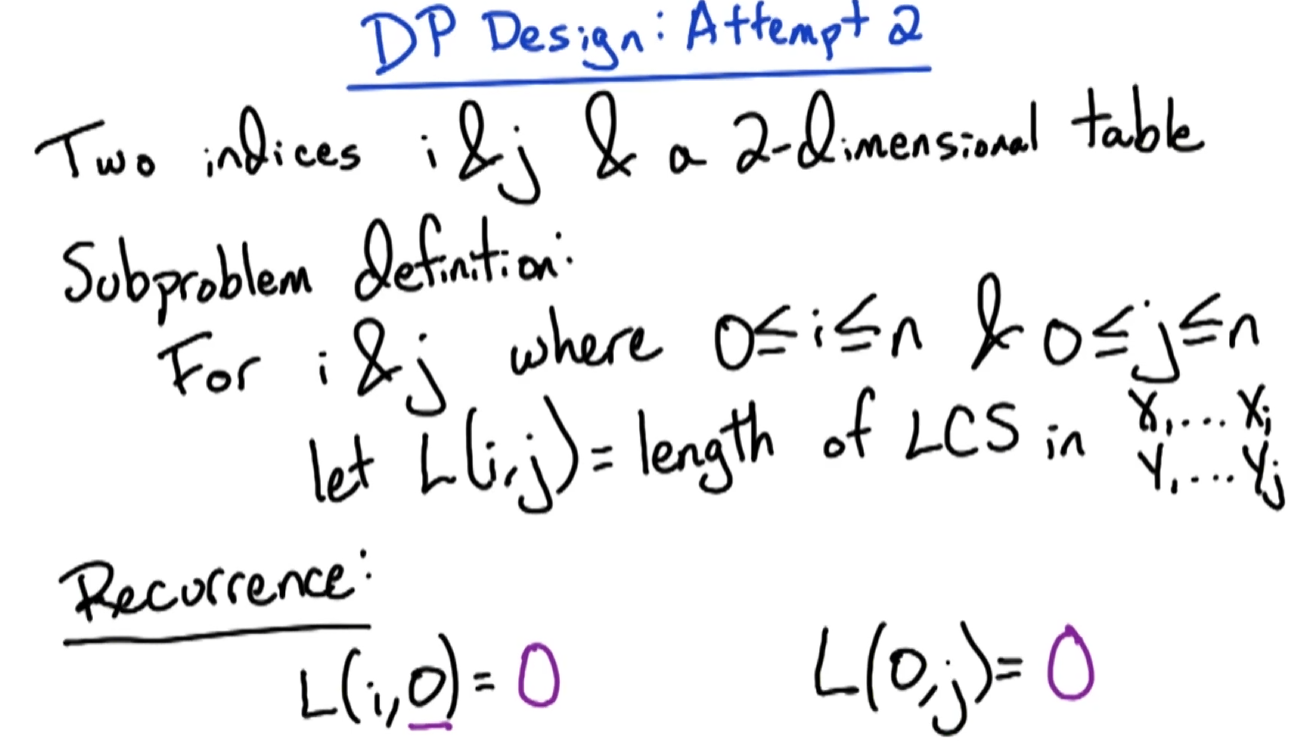 DP Design: Attempt 2
Two indices i & j & a 2-dimensional table
Subproblem definition:
For i & j where 0≤i≤n & 0≤j≤n
let L(i,j)= length of LCS in X₁...Xᵢ
Y₁...Yⱼ
Recurrence:
L(i,0)= 0 L(0,j)= 0